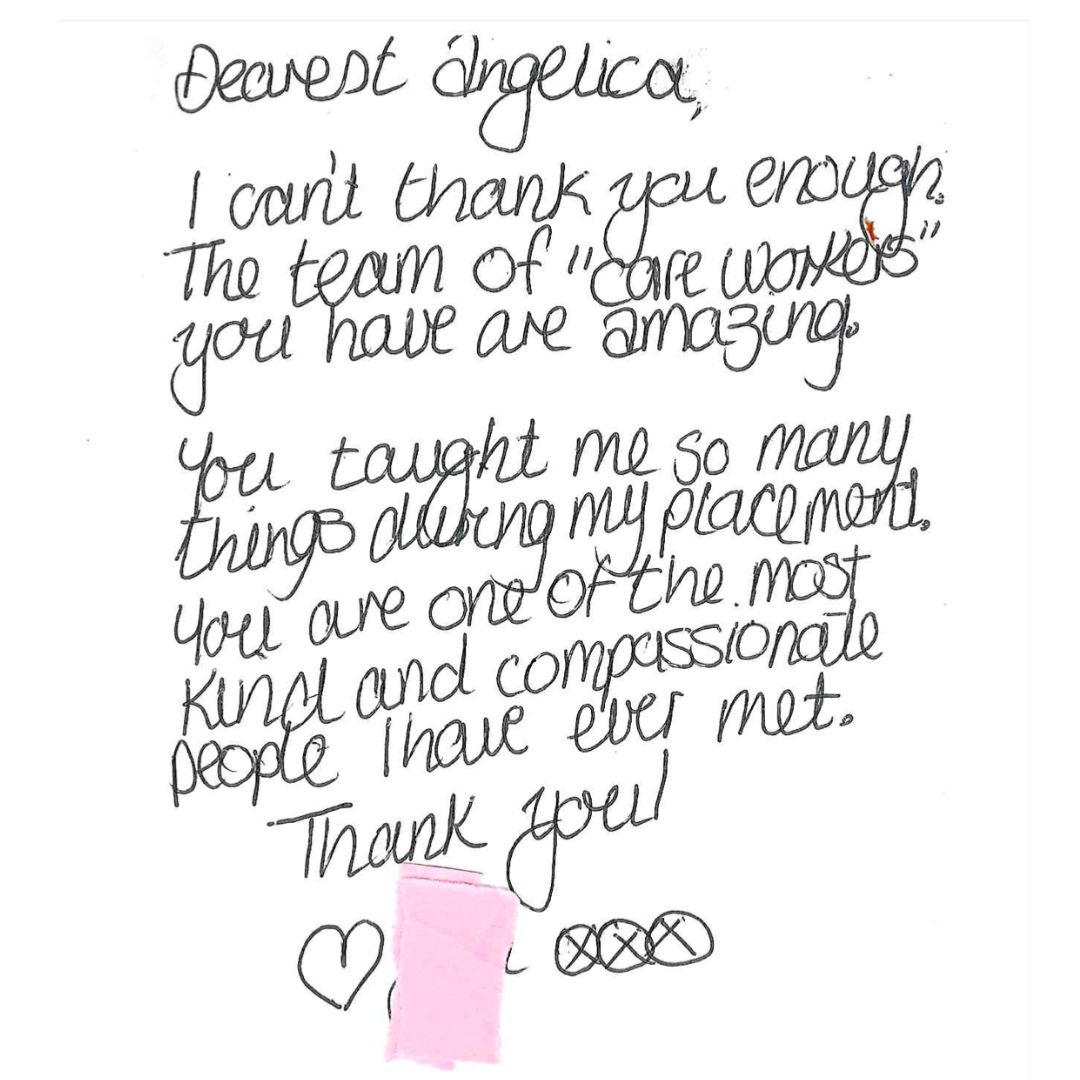 Dearest Angelica,
I can't thank you enough.
The team of "care workers"
you have are amazing.
You taught me so many
things during my placement.
You are one of the most
kind and compassionate
people I have ever met.
Thank you!
♡ xxx